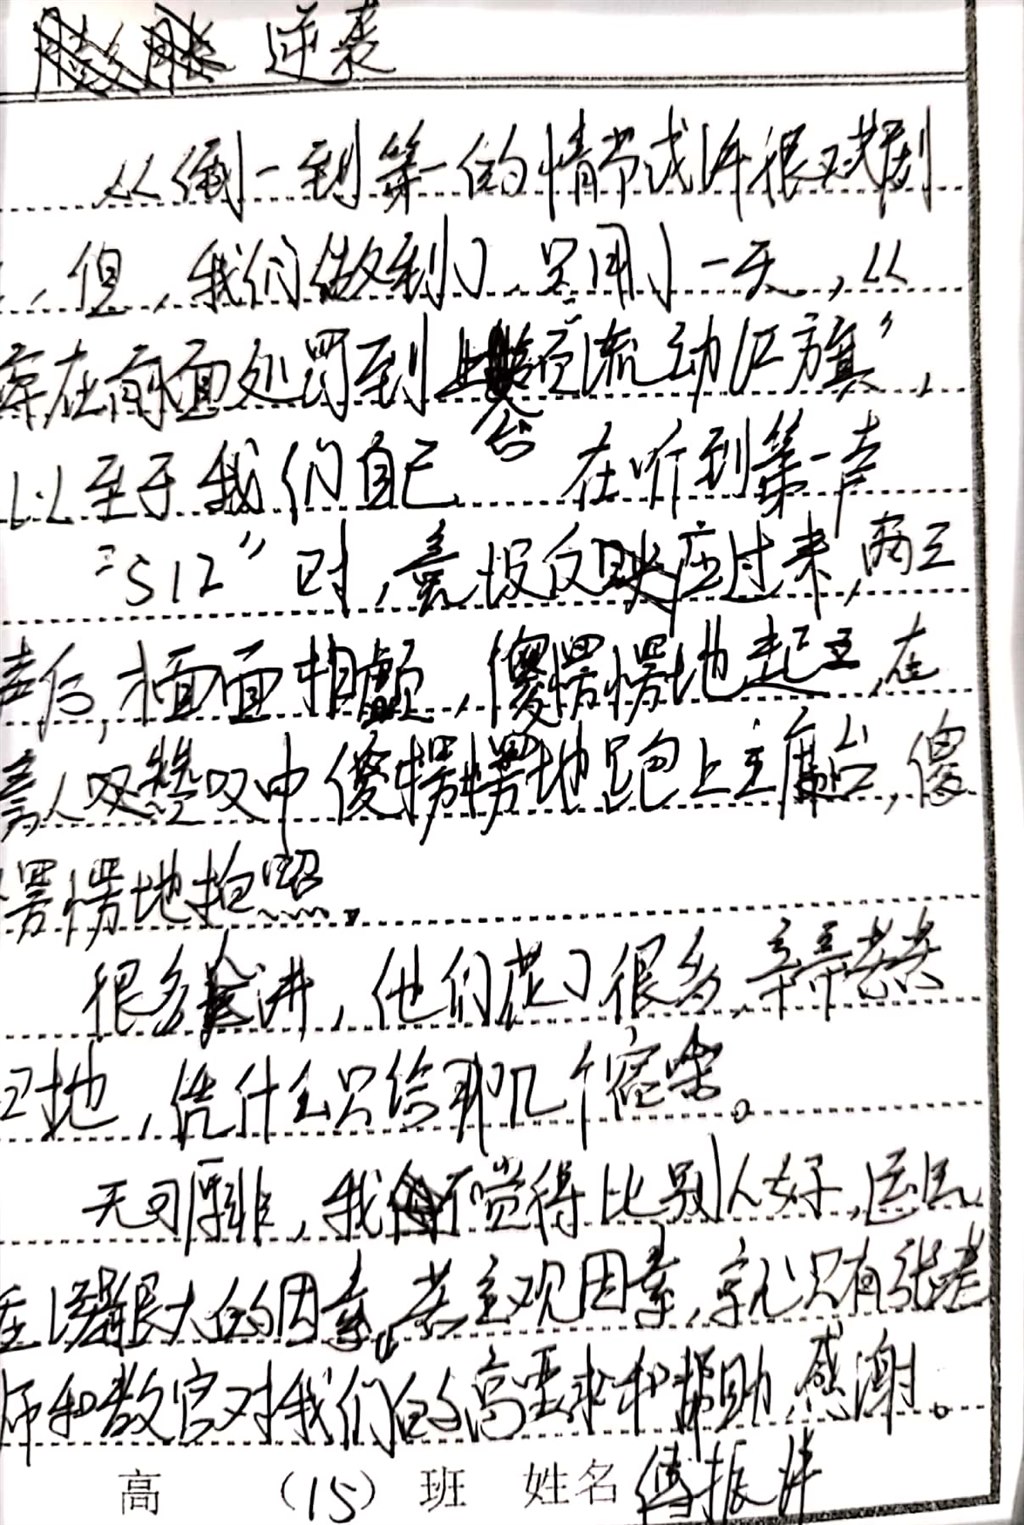 逆袭
从倒一到第一的情节或许很戏剧
，但，我们做到了，只用了一天，从
在雨面处罚到上台领"流动红旗"，
以至于我们自己 在听到第一声
"512"时，毫没反应过来，两三
声后，面面相觑，傻愣愣地起立，在
人叹中傻愣愣地跑上主席台，傻
愣愣地拍照……。
很多人讲，他们花了很多，辛辛苦苦
地，凭什么只给那几个宿舍。
无可厚非，我不觉得比别人好，运气
占很大的因素。若主观因素，就只有张老
师和教官对我们的高要求和帮助，感谢。
高 （15）班 姓名 傅振洋